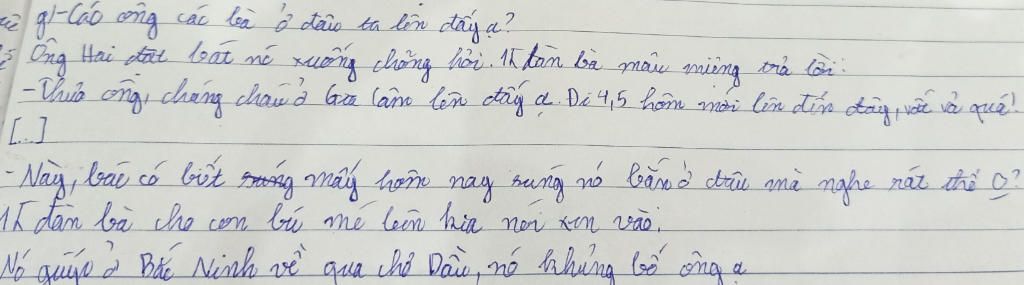 g) - Các ông các bà ở đâu ta lên đấy ạ?
Ông Hai đặt bát nc xuống chõng hỏi. 1 đàn bà mau miệng trả lời:
- Thưa ông, chúng cháu ở Gia Lâm lên đấy ạ. Đi 4,5 hôm mới lên đến đây, vất vả quá!
[...]
- Này, bác có biết súng mấy hôm nay súng nó bắn ở đâu mà nghe rát thế o?
1 đàn bà cho con bú mé bên kia nói xen vào.
Nó quýp ở Bắc Ninh về qua chợ Dầu, nó khủng bố ông ạ